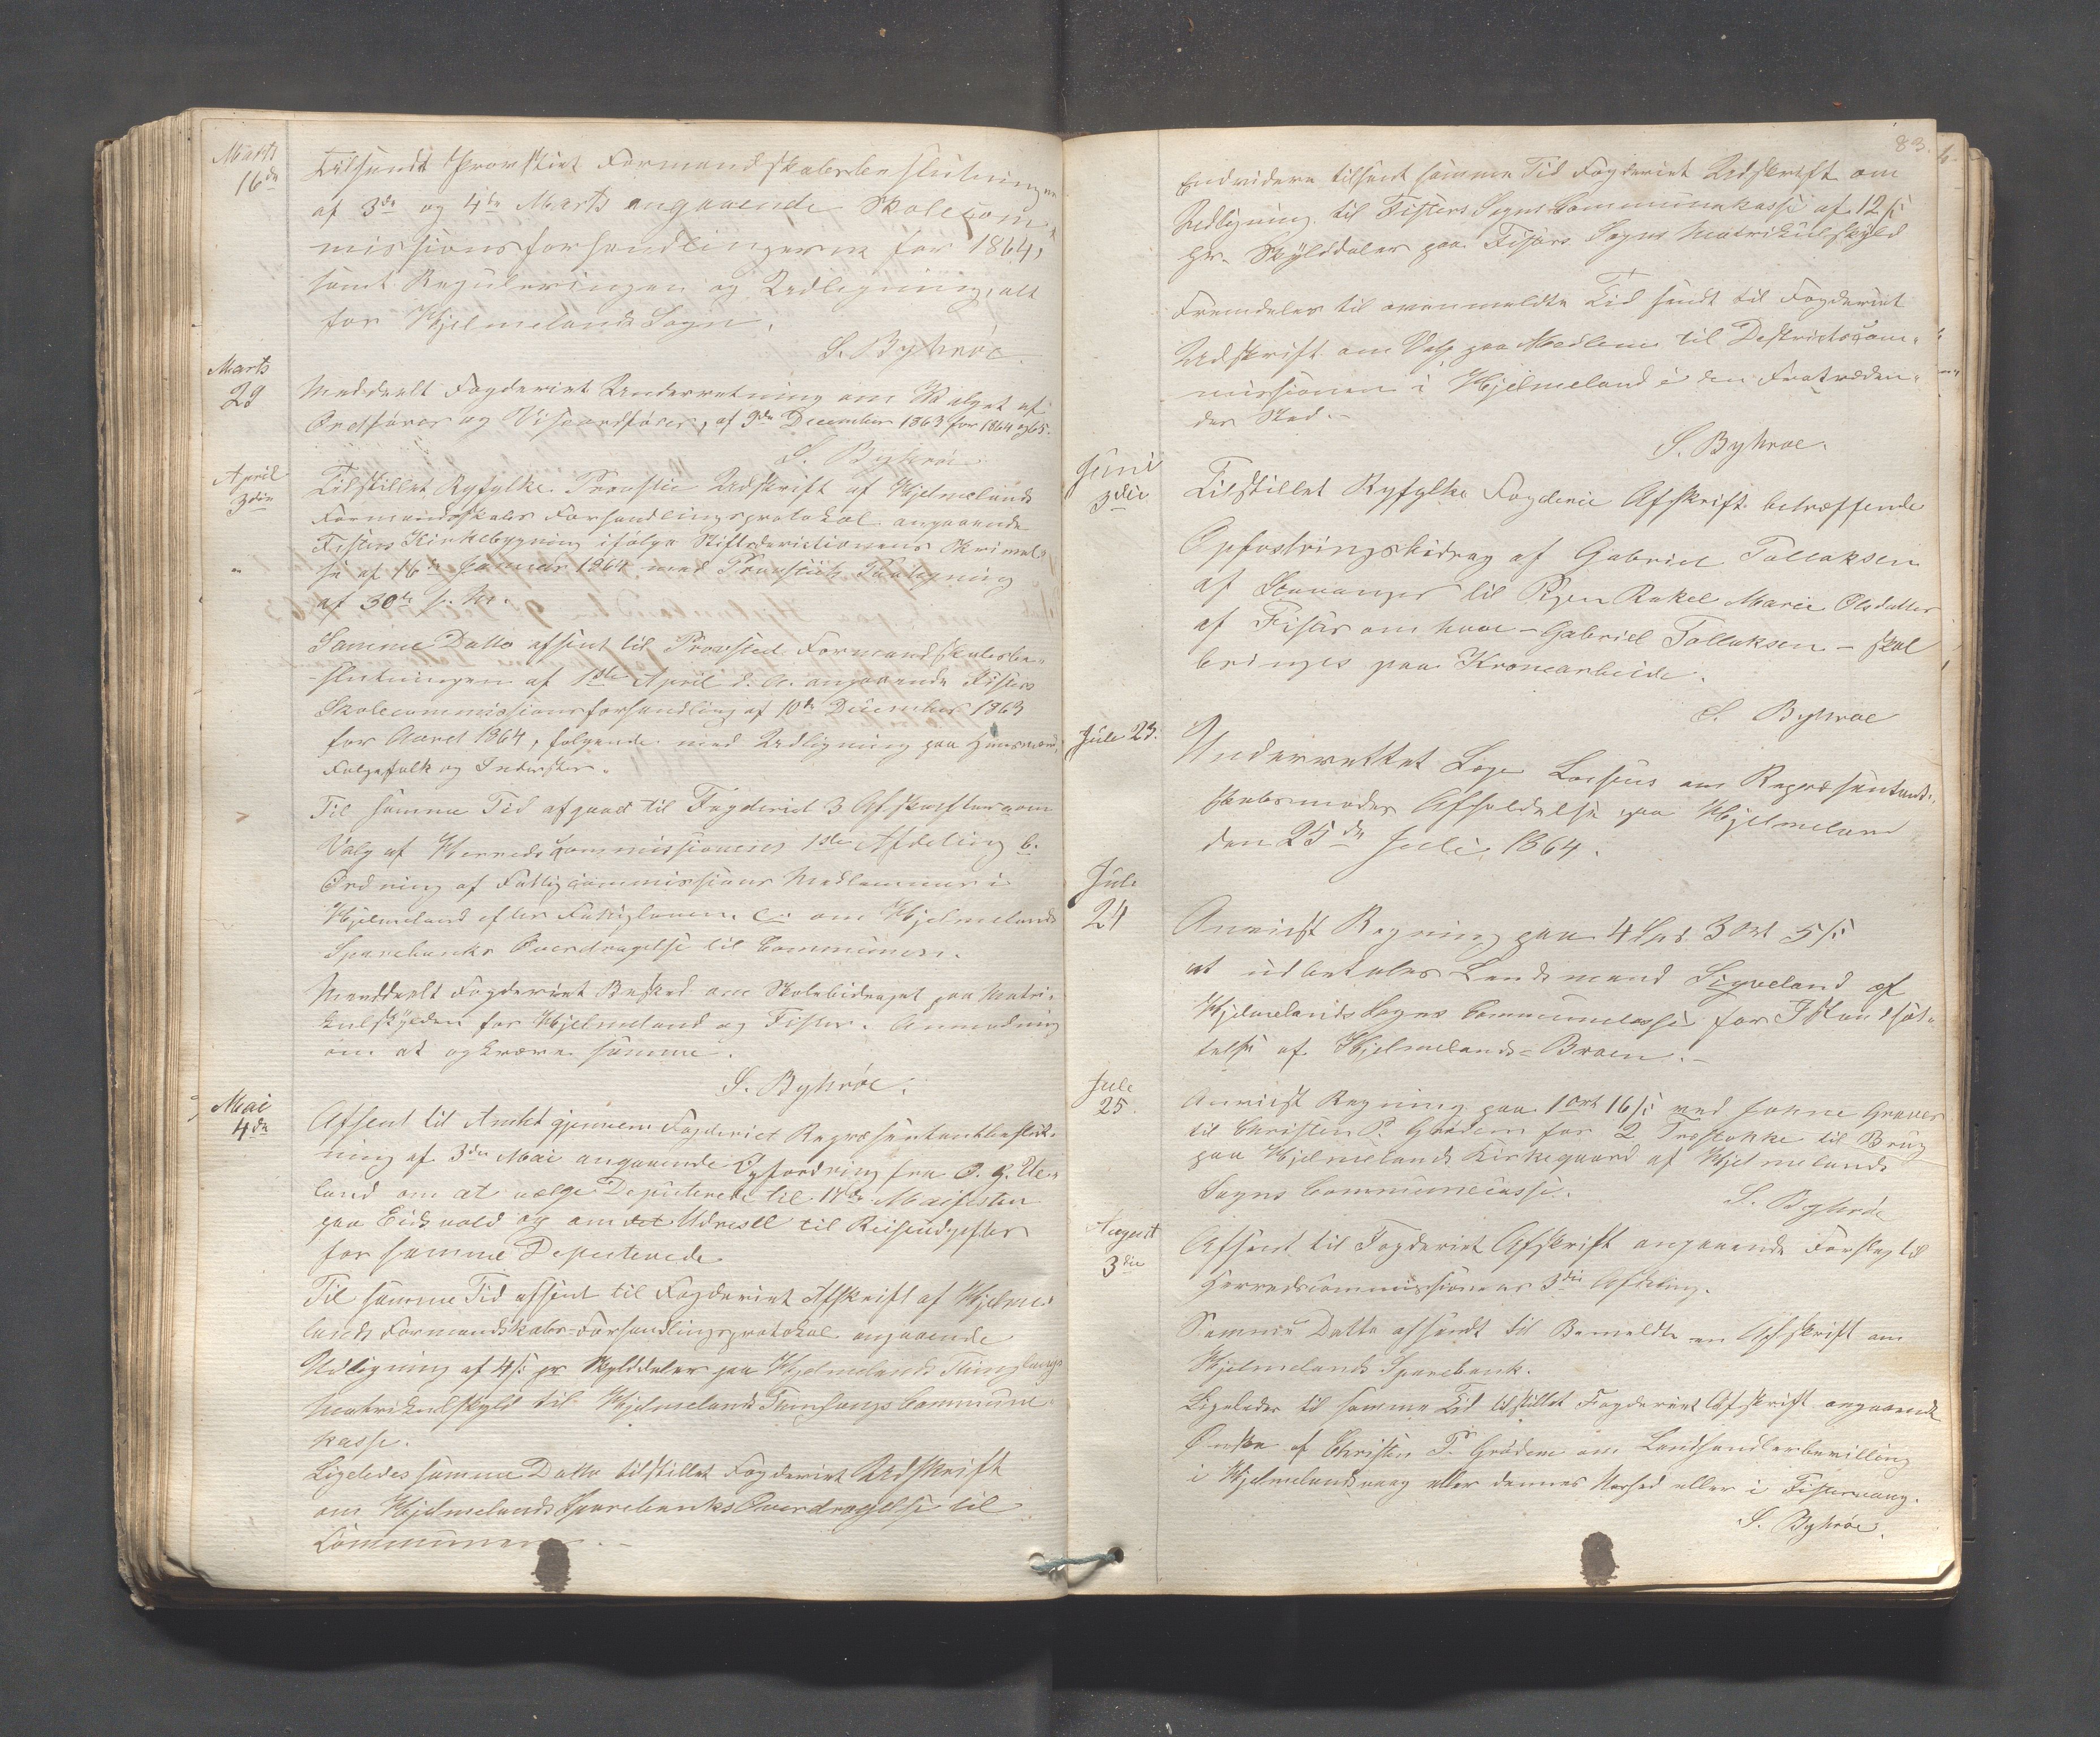 Marts
16de
Tilsendt Provstiet Formandskabsbeslutningen
af 3de og 4de Marts angaaende Skolecom-
missionsforhandlingerne for 1864,
samt Reguleringen og Udligning, alt
for Hjelmelands Sogn.
S. Byhroe.
Marts
29
Meddeelt Fogderiet Underretning om Valget af
Ordfører og Viceordfører, af 9de December 1863 for 1864 og 65.
S. Byhroe
April
3die
Tilstillet Ryfylke Provstie Udskrift af Hjelmelands
Formandskabs Forhandlingsprotokol angaaende
Fisters Kirkebygning ifølge Stiftsdirectionens Skrivel-
se af 16de Januar 1864 med Provstiets Paategning
af 30te s. M.
Samme Datto afsent til Provstiet Formandskabsbe-
slutningen af 1ste April d. A. angaaende Fisters
Skolecommissionsforhandling af 10de December 1863
for Aaret 1864, følgende med Udligning paa Huusmænd,
Folgefolk og Inderster.
Til samme Tid afgaaet til Fogderiet 3 Afskrifter om
Valg af Herredscommissionens 1ste Afdeling b.
Ordning af Fattigcommissions Medlemmer i
Hjelmeland efter Fattigloven. c. om Hjelmelands
Sparebanks Overdragelse til Communen.
Meddeelt Fogderiet Besked om Skolebidraget paa Matri-
kulskylden for Hjelmeland og Fister. Anmodning
om at opkræve samme.
S. Byhröe.
Mai
4de
Afsent til Amtet gjennem Fogderiet Repræsentantbeslut-
ning af 3die Mai angaaende Opfordring fra O. G. Ue-
land om at vælge Deputerede til 17de Maifesten
paa Eidsvold og om det Udviste til Reiseudgifter
for samme Deputerede
Til samme Tid afsent til Fogderiet Afskrift af Hjelme-
lands Formandskabs-Forhandlingsprotokol angaaende
Udligning af 4 s: pr Skylddaler paa Hjelmelands Tinglaugs
Matrikulskyld til Hjelmelands Tinglaugs Commune-
kasse.
Ligeledes samme Datto tilstillet Fogderiet Udskrift
om Hjelmelands Sparebanks Overdragelse til
Communen.
83.
Endvidere tilsent samme Tid Fogderiet Udskrift om
Udligning til Fisters Sogns Communekasse af 12 s:
pr. Skylddaler paa Fisters Sogns Matrikulskyld
Fremdeles til ovenmeldte Tid sendt til Fogderiet
Udskrift om Valg paa Medlem til Destrictscom-
missionen i Hjelmeland i den Fratræden-
des Sted.
S. Byhroe.
Juni
3die
Tilstillet Ryfylke Fogderie Afskrift betræffende
Opfostringsbidrag af Gabriel Tollaksen
af Stavanger til Pigen Rakel Marie Olsdatter
af Fister om hvor - Gabriel Tollaksen - skal
bringes paa Kronearbeide.
S. Byhroe
Juli 23.
Underrettet Læge Larsens om Repræsentant-
skabsmødes Afholdelse paa Hjelmeland
den 25de Juli 1864.
Juli
24
Anviist Regning paa 4 Spd. 3 Ort 5 s:
at udbetales Lendsmand Sigveland af
Hjelmelands Sogns Communecasse for Istandsæt-
telse af Hjelmelands-Broen.
Juli
25.
Anviist Regning paa 1 Ort 16 s: ved Johne Graver
til Christen P. Grødem for 2 Træstokke til Brug
paa Hjelmelands Kirkegaard af Hjelmelands
Sogns Communecasse.
S. Byhröe
August
3die
Afsent til Fogderiet Afskrift angaaende Forslag til
Herredscommissionens 3die Afdeling.
Samme Datto afsendt til Bemeldte en Afskrift om
Hjelmelands Sparebank.
Ligeledes til samme Tid tilstillet Fogderiet Afskrift angaaende
Ønske af Christen P. Grødem om Landhandlerbevilling
i Hjelmelandsvaag eller dennes Nærhed eller i Fistervaag.
S. Byhröe.